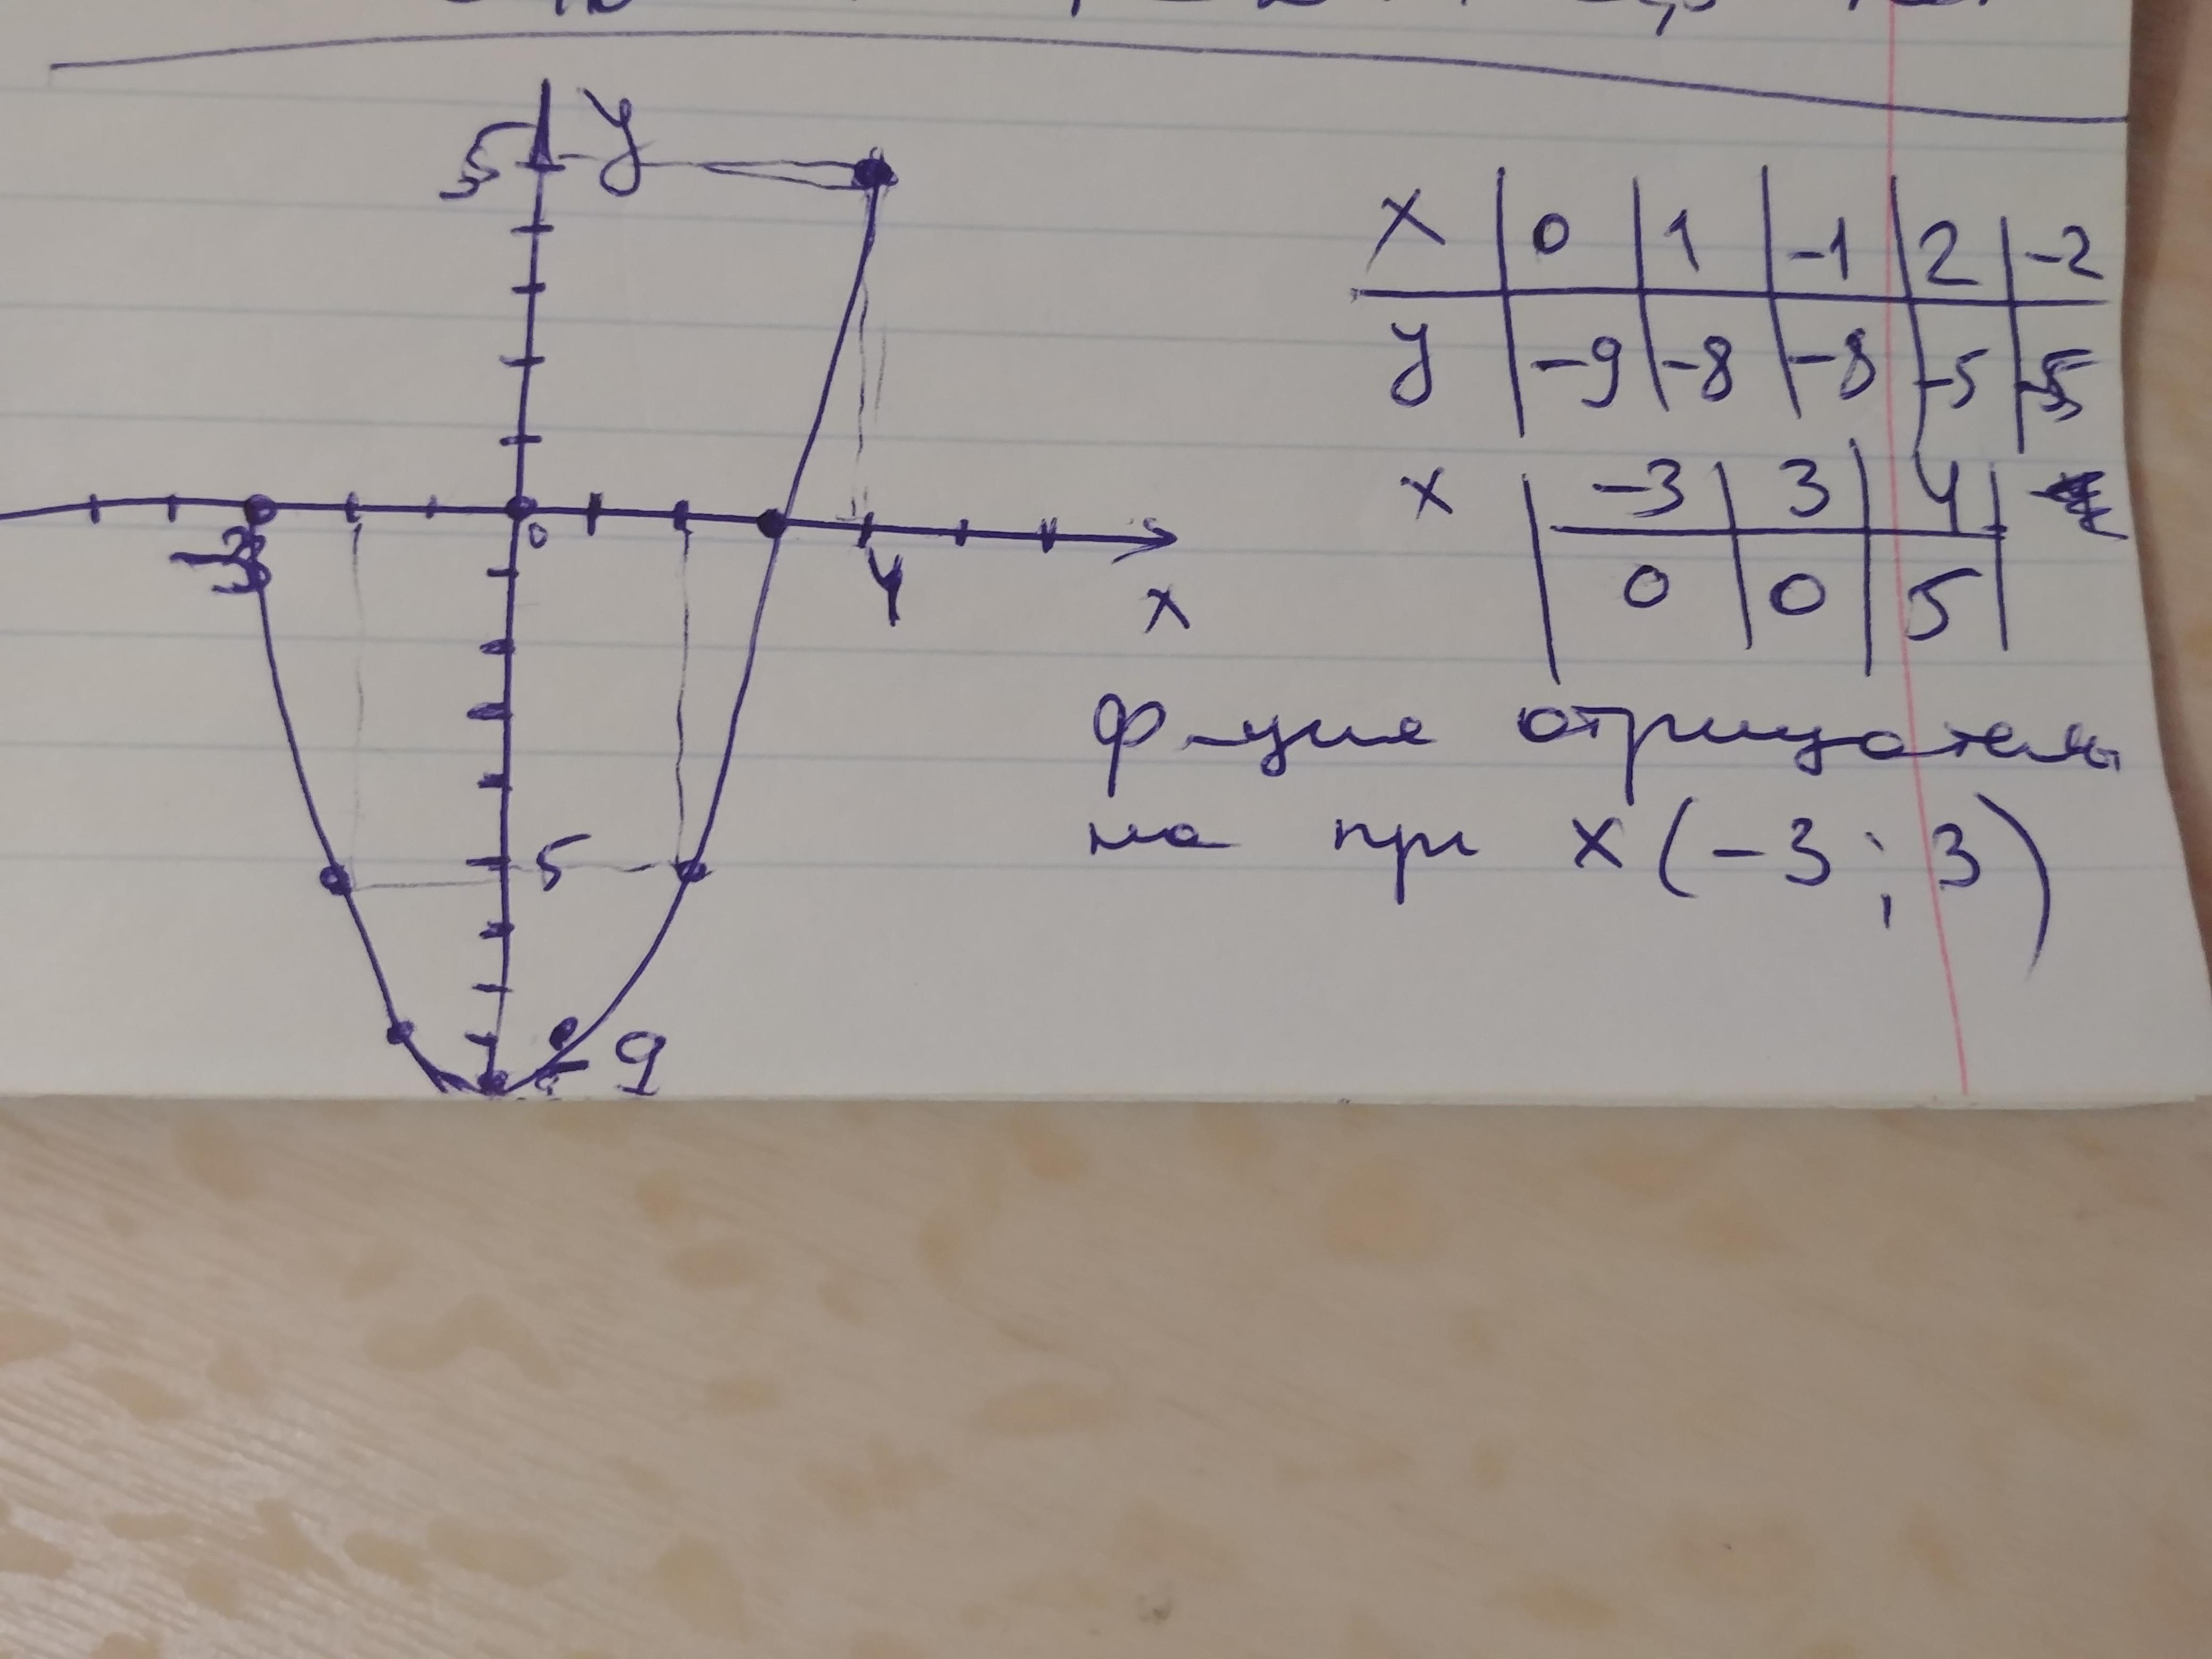 y
5
-3
0
4
x
5
-9
x | 0 | 1 | -1 | 2 | -2
y | -9 | -8 | -8 | -5 | -5
x | -3 | 3 | 4
0 | 0 | 5
ф-ция отрицатель
на при x(-3; 3)